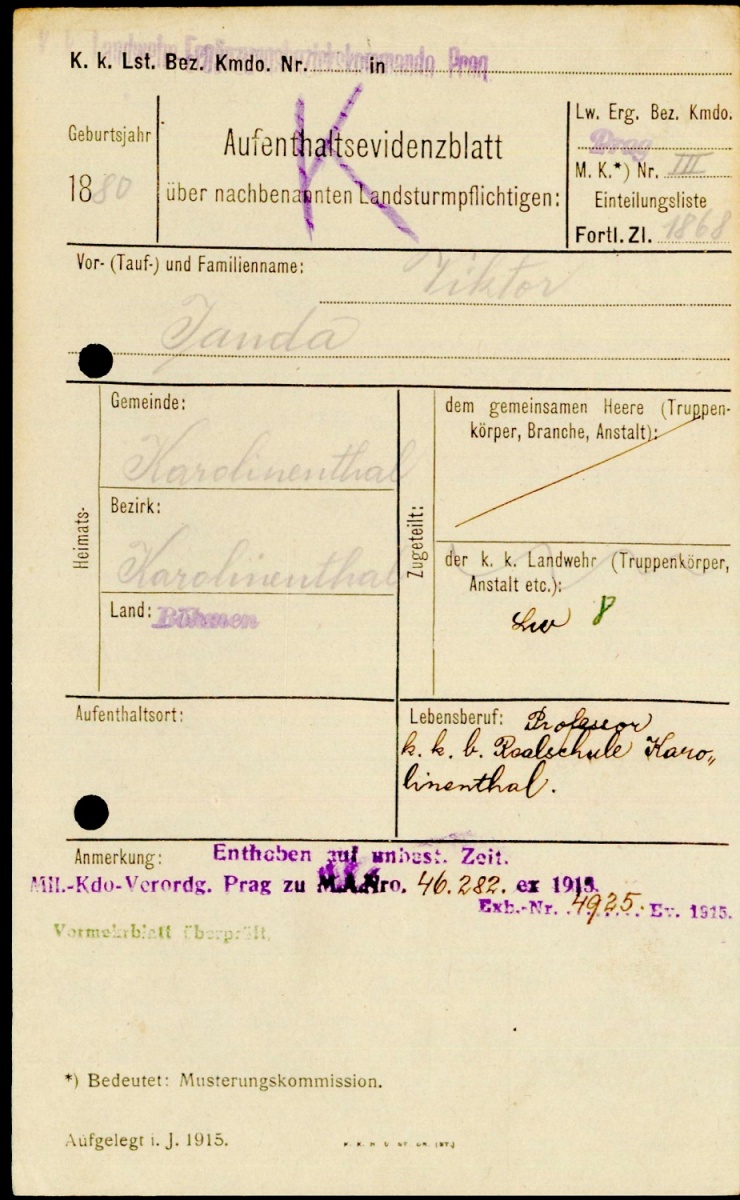 K. k. Landwehr Ergänzungsbezirkskommando Prag
K. k. Lst. Bez. Kmdo. Nr. in
Geburtsjahr
1880
K
Aufenthaltsevidenzblatt
über nachbenannten Landsturmpflichtigen:
Lw. Erg. Bez. Kmdo.
Prag
M. K.*) Nr. III
Einteilungsliste
Fortl. Zl. 1868
Vor- (Tauf-) und Familienname: Viktor
Janda
Heimats-
Gemeinde:
Karolinenthal
Bezirk:
Karolinenthal
Land: Böhmen
Zugeteilt:
dem gemeinsamen Heere (Truppen-
körper, Branche, Anstalt):
der k. k. Landwehr (Truppenkörper,
Anstalt etc.):
Lw 8
Aufenthaltsort:
Lebensberuf: Professor
k. k. b. Realschule Karo„
linenthal.
Anmerkung: Enthoben auf unbest. Zeit.
Mil.-Kdo-Verordg. Prag zu M.A.Nro. 46.282. ex 1915.
Exh.-Nr. 4925. Ev. 1915.
Vormekrblatt überprüft.
*) Bedeutet: Musterungskommission.
Aufgelegt i. J. 1915.